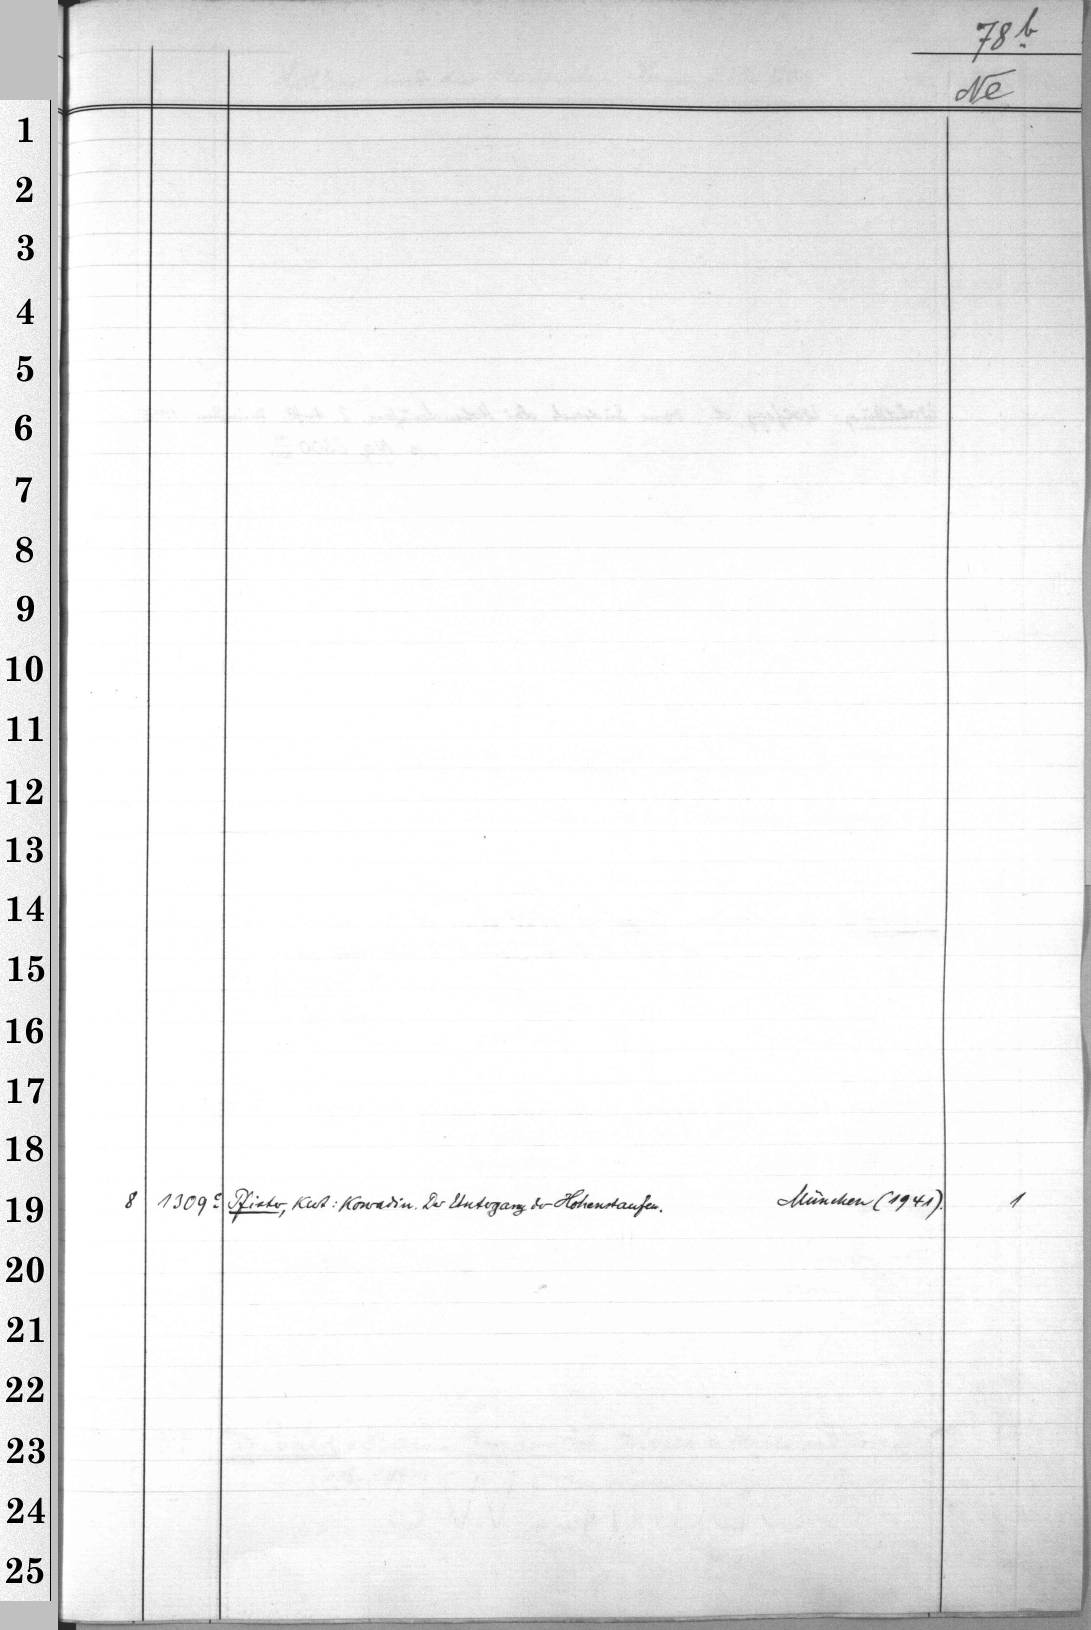 78b
Ne
1
2
3
4
5
6
7
8
9
10
11
12
13
14
15
16
17
18
19 8 1309c Pfister, Kurt: Konradin. Der Untergang der Hohenstaufen. München (1941). 1
20
21
22
23
24
25